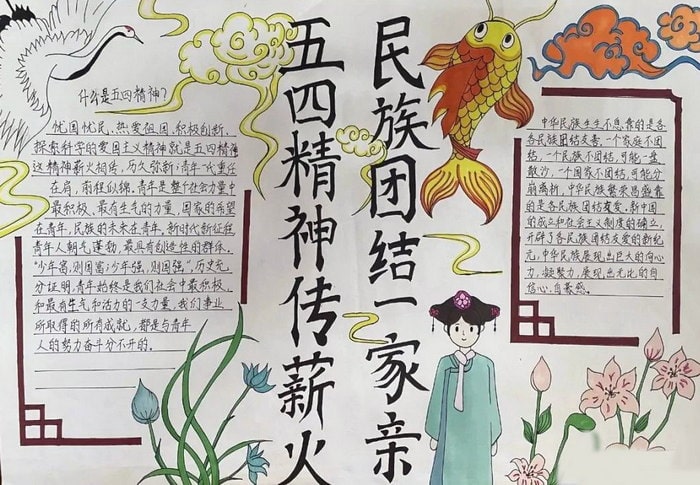 民族团结一家亲
五四精神传薪火
什么是五四精神?
忧国忧民,热爱祖国,积极创新,
探索科学的爱国主义精神就是五四精神
这精神薪火相传,历久弥新!青年一代重任
在肩,前程似锦,青年是整个社会力量中
最积极、最有生气的力量,国家的希望
在青年,民族的未来在青年,新时代新征程,
青年人朝气蓬勃,最具有创造性的群体,
"少年富,则国富;少年强,则国强",历史充
分证明,青年始终是我们社会中最积极、
和最有生气和活力的一支力量,我们事业
所取得的所有成就,都是与青年
人的努力奋斗分不开的。
中华民族生生不息靠的是各
各民族团结友善,一个家庭不团
结,一个民族不团结,可能一盘
散沙,一个国家不团结,可能分
崩离析,中华民族繁荣昌盛靠
的是各民族团结友爱,新中国
的成立和社会主义制度的确立,
开辟了各民族团结友爱的新纪
元,中华民族展现出巨大的向心
力,凝聚力,展现出无比的自
信心,自豪感。